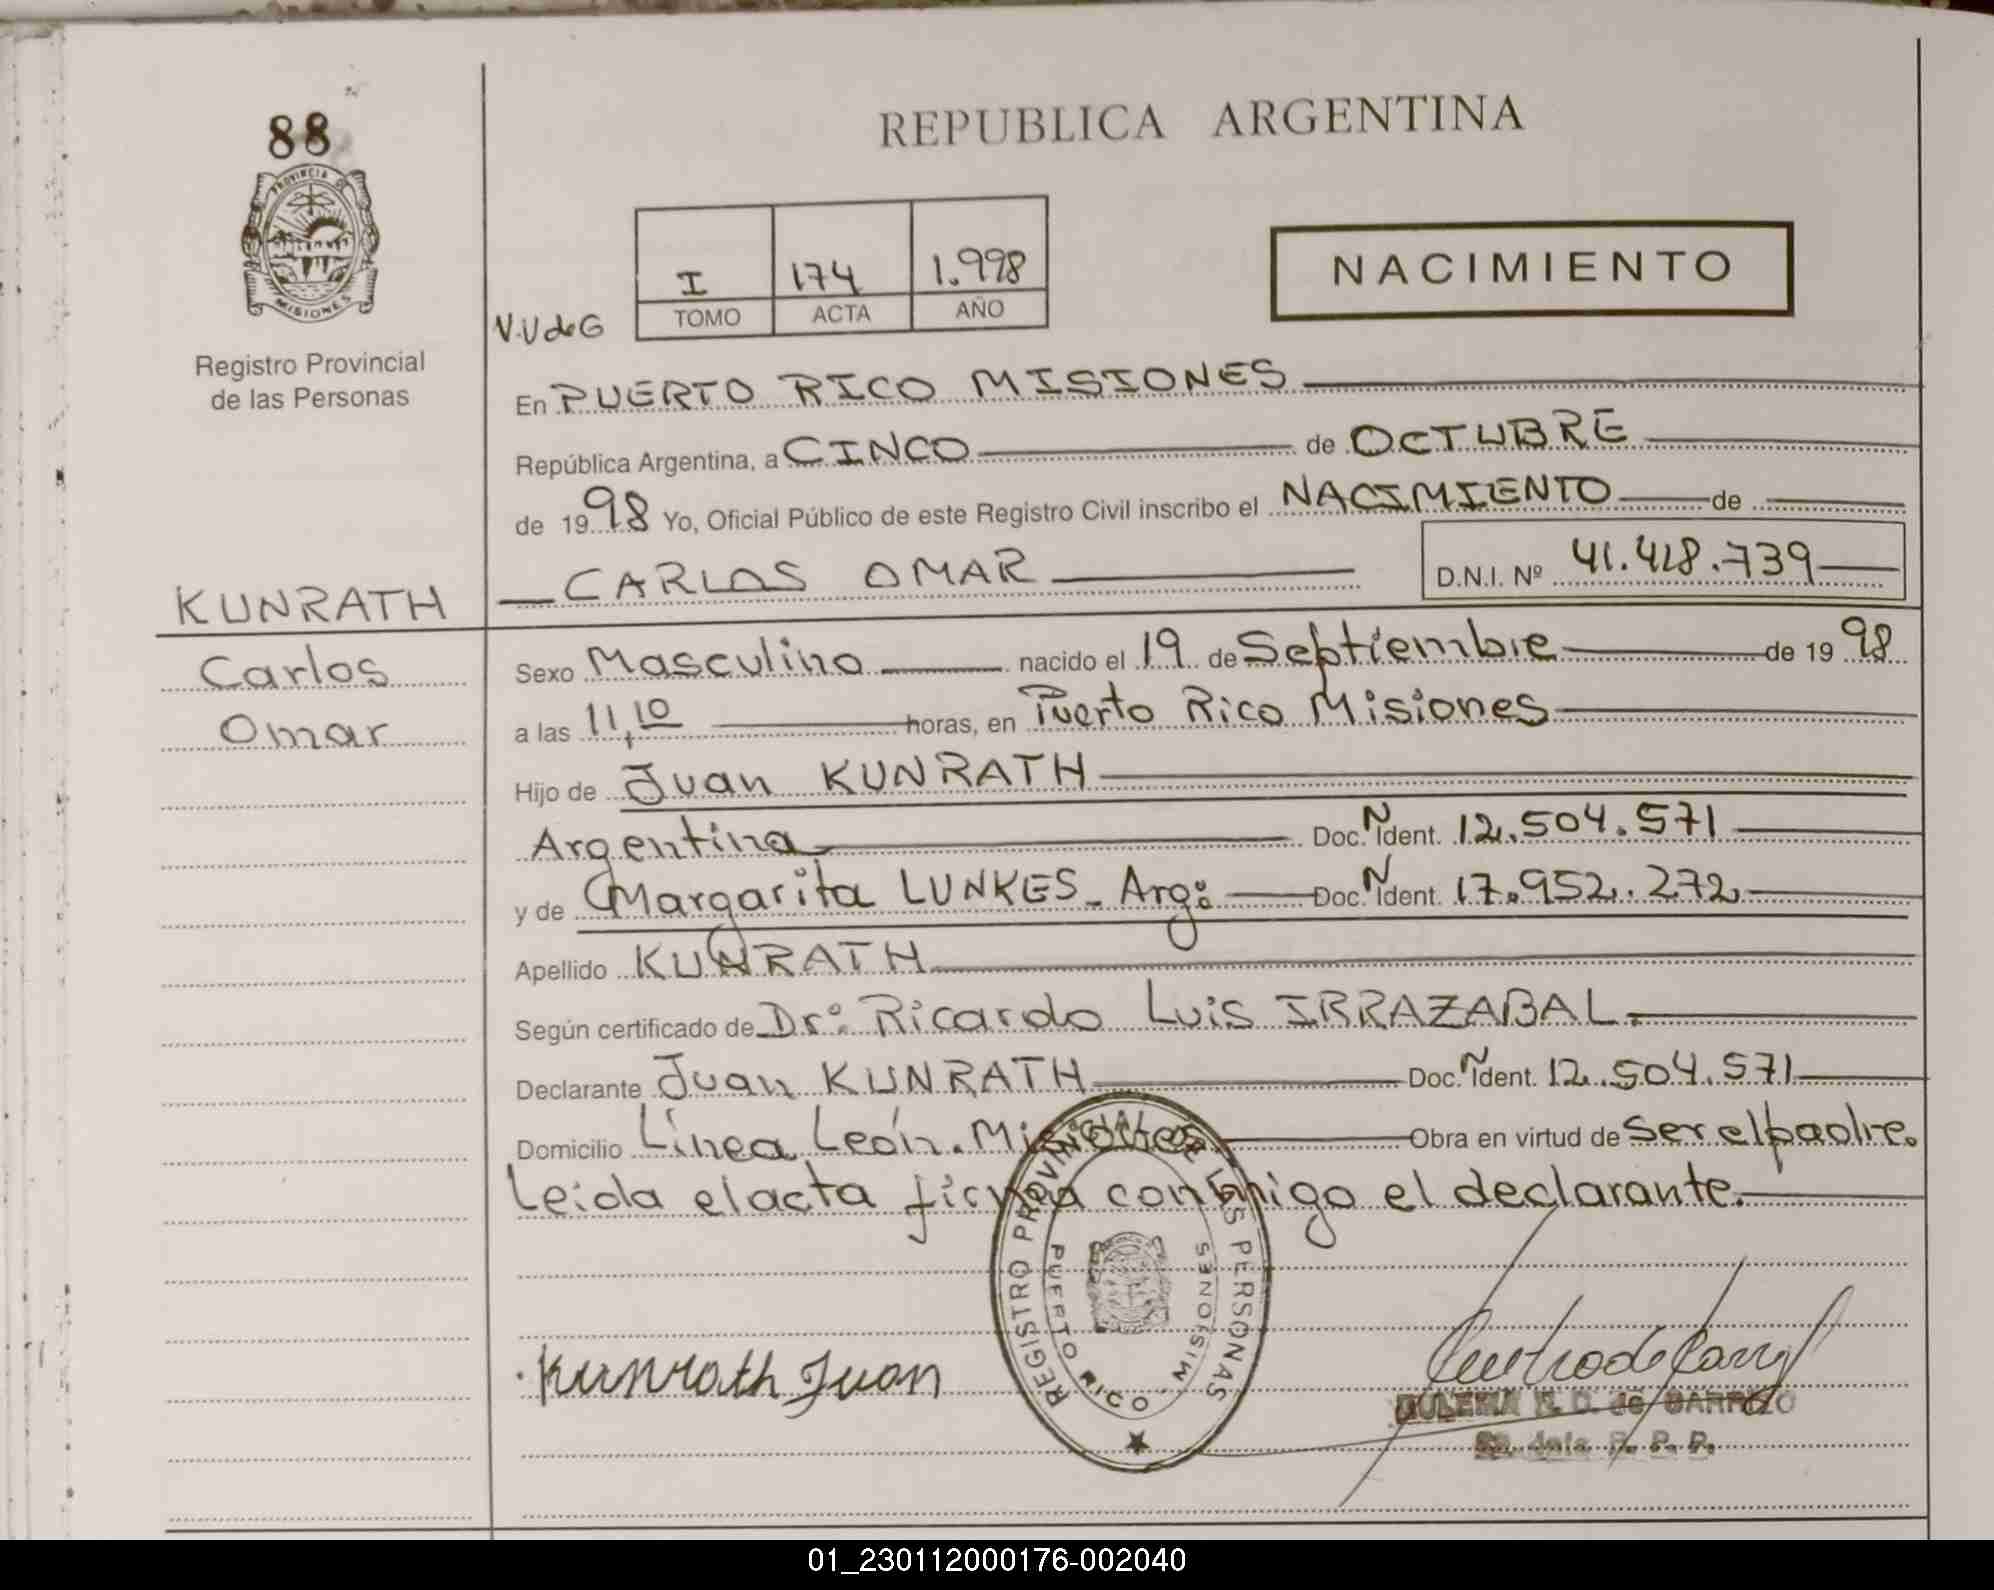 88
REPUBLICA ARGENTINA
PROVINCIA DE
MISIONES
I 174 1.998
TOMO ACTA AÑO
NACIMIENTO
V.U de G
Registro Provincial
de las Personas
En PUERTO RICO MISIONES
República Argentina, a CINCO de OCTUBRE
de 1998 Yo, Oficial Público de este Registro Civil inscribo el NACIMIENTO de
KUNRATH
CARLOS OMAR D.N.I. Nº 41.418.739
Carlos
Omar
Sexo Masculino nacido el 19 de Septiembre de 1998
a las 11,10 horas, en Puerto Rico Misiones
Hijo de Juan KUNRATH
Argentina Doc. N Ident. 12.504.571
y de Margarita LUNKES - Arg: Doc. N Ident. 17.952.272
Apellido KUNRATH
Según certificado de Dr: Ricardo Luis IRRAZABAL.
Declarante Juan KUNRATH Doc. N Ident. 12.504.571
Domicilio Línea León. Misiones Obra en virtud de ser el padre.
Leida el acta firma conmigo el declarante.
REGISTRO PROVINCIAL DE LAS PERSONAS
PUERTO RICO - MISIONES
Kunrath Juan
de BARRIZO
R. P. P.
01_230112000176-002040